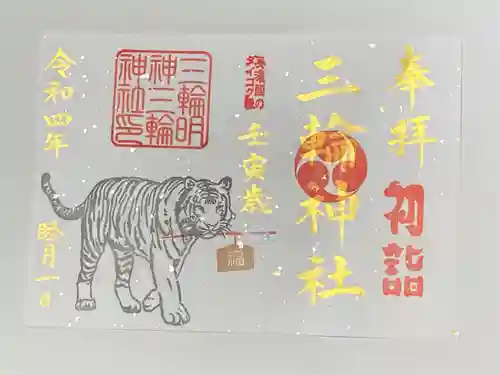 奉拝
初詣
三輪神社
壬寅歳
三輪明
神三輪
神社印
福
令和四年
睦月一日